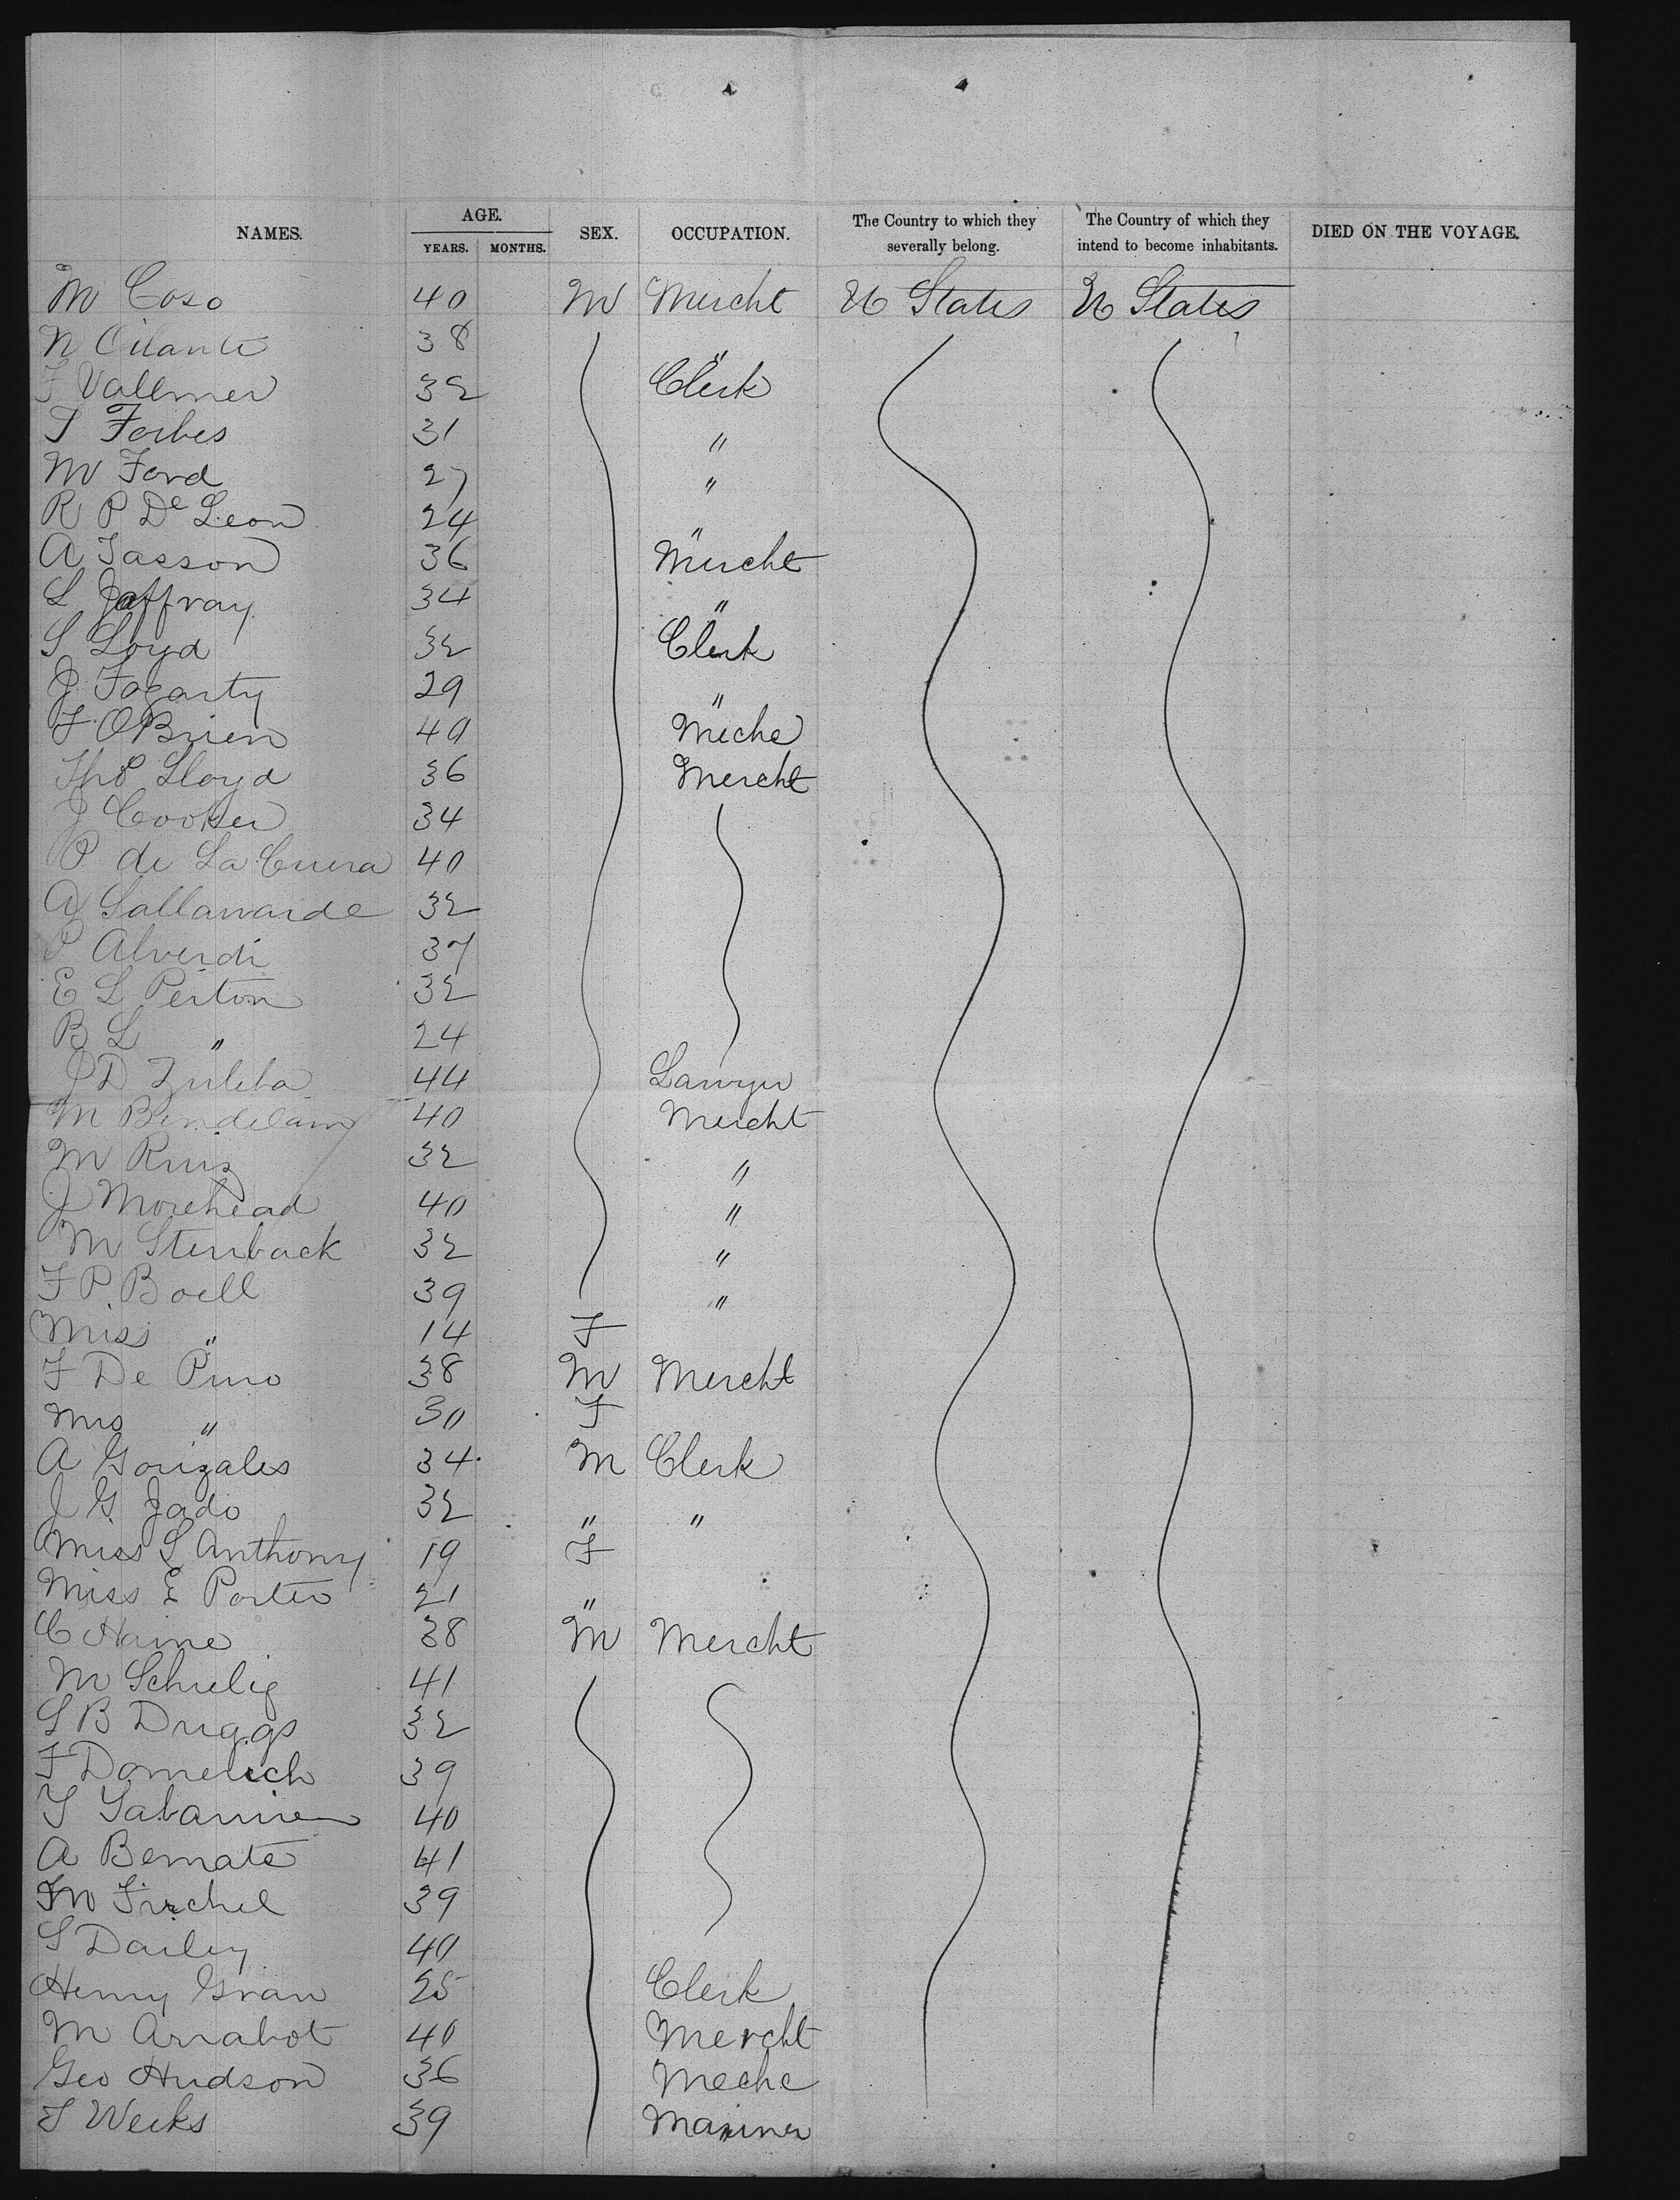 NAMES. AGE. SEX. OCCUPATION. The Country to which they severally belong. The Country of which they intend to become inhabitants. DIED ON THE VOYAGE.
YEARS. MONTHS.
M Coso 40 M Mercht U States U States
N Cilante 38 "
F Vallmer 32 Clerk
T Forbes 31 "
M Ford 27 "
R P De Leon 24 "
A Sasson 36 Mercht
L Jaffray 34 "
S Loyd 32 Clerk
J Fogarty 29 "
F OBrien 40 Meche
Thos Lloyd 36 Mercht
J Cooker 34
P de La Cuera 40
A 32
P Alverdi 37
E L Perton 32
B L " 24
J D Zuleta 44 Lawyer
M Bendelam 40 Mercht
M Ruiz 32 "
J Morehead 40 "
M Stenback 32 "
F P Boell 39 "
Miss " 14 F
F De Pino 38 M Mercht
Mrs " 30 F
A Gonzales 34 M Clerk
J G Jado 32 " "
Miss S Anthony 19 F
Miss E Porter 21 "
C Haine 38 M Mercht
M Schulig 41
S B Druggs 32
F Domerich 39
40
A Bernate 41
M Firchel 39
S Dailey 40
Henry Gran 25 Clerk
M Arrabot 40 Mercht
Geo Hudson 36 Meche
T Weeks 39 Mariner